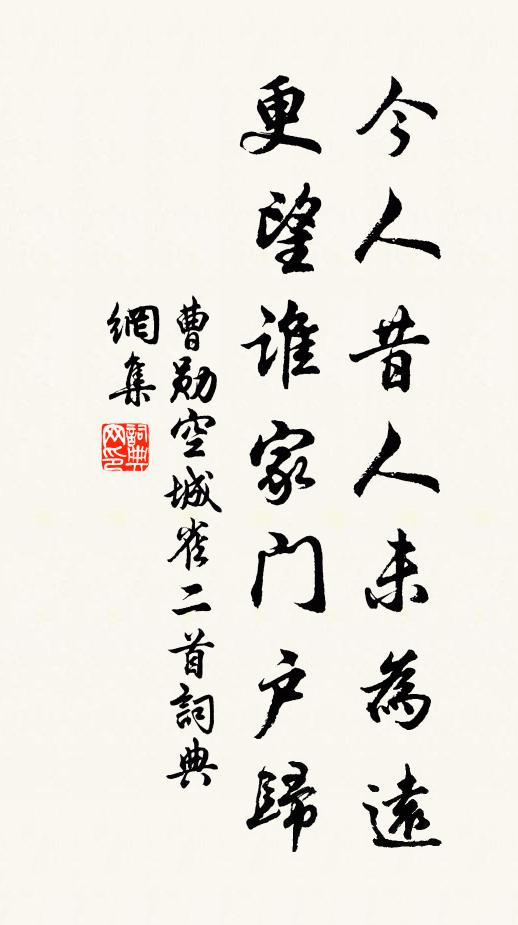 今人昔人未為遠
更望誰家門戶歸
曹勛空城雀二首詞典
網集
詞典
网印